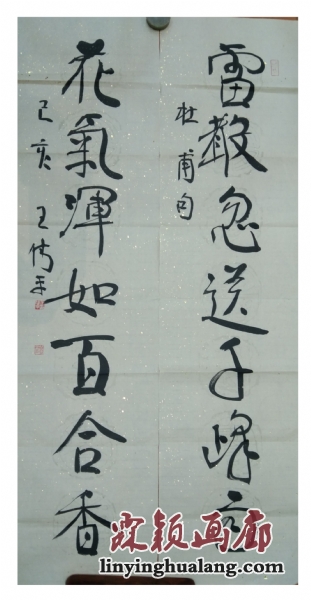 雷聲忽送千峰雨
杜甫句
花氣渾如百合香
己亥 王
霖颖画廊
linyinghualang.com